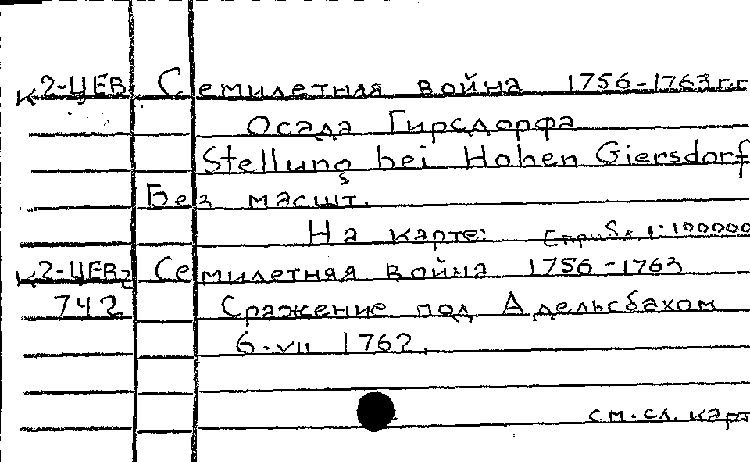 К2-ЦЕВ Семилетняя война 1756-1763 г.г
Осада Гирсдорфа
Stellung bei Hohen Giersdorf
Без масшт.
На карте: 1:100000
К2-ЦЕВ2 Семилетняя война 1756-1763
742 Сражение под Адельсбахом
6-VII 1762.
см. сл. карт